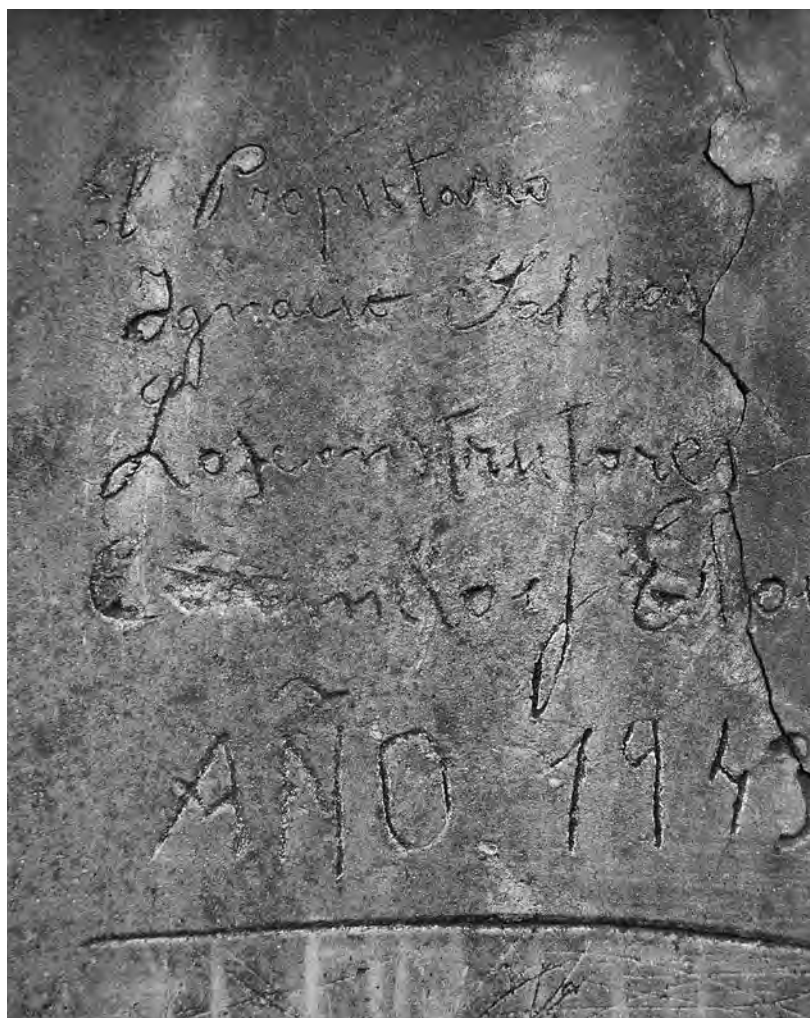 El Propietario
Ignacio Saldias
Los construtores
AÑO 1943